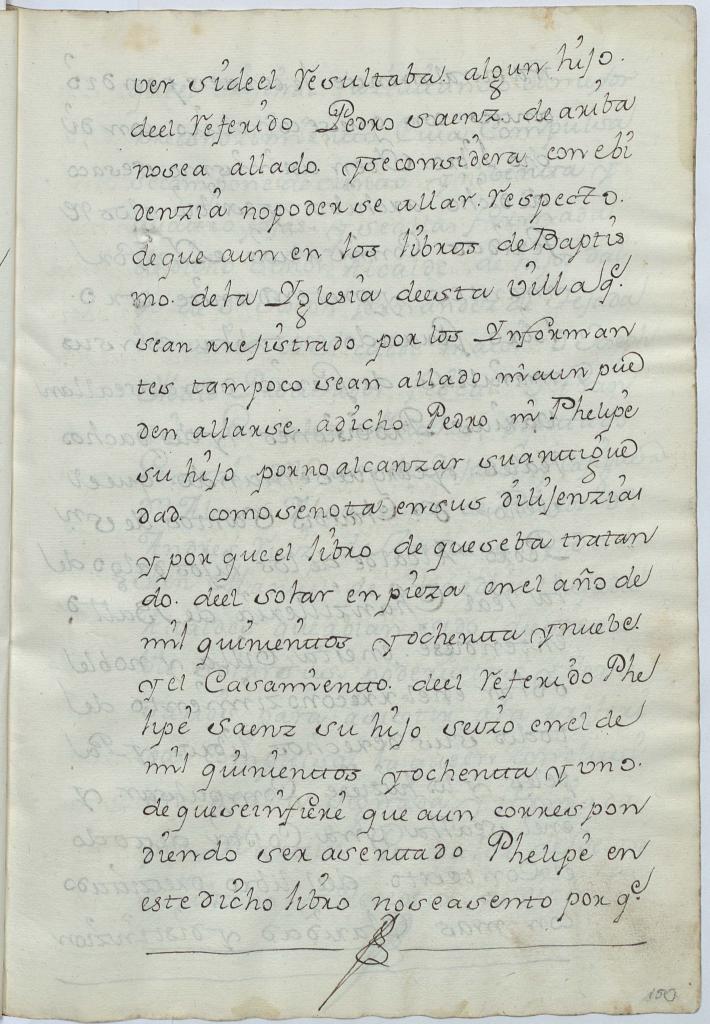 ver sideel resultaba. algun hijo.
deel referido Pedro saenz. de ariba
nosea allado. yseconsidera con ebi
denzia nopoderse allar. respecto.
deque aun en los libros de Baptis
mo. dela Yglesia deesta villa q.e
sean rrejistrado por los Ynforman
tes tampoco sean allado ni aun pue
den allarse. adicho Pedro ni Phelipe
su hijo porno alcanzar suanttigue
dad. como senota ensus dilijenzias
y por queel libro de queseba tratan
do. deel solar enpieza enel año de
mil quinienttos yochentta ynuebe.
yel Casamientto. deel referido Phe
lipe saenz su hijo seizo enel de
mil quinienttos yochentta yuno.
de queseinfiere que aun correspon
diendo ser asenttado Phelipe en
este dicho libro noseasento por q.e
150